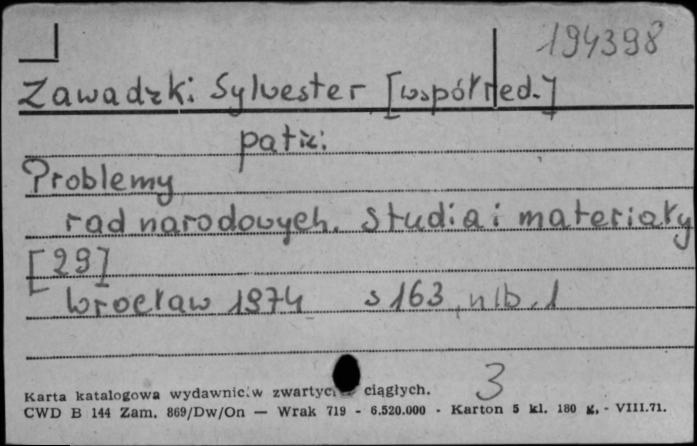 194398
Zawadzki Sylwester [współred.]
patrz:
Problemy
rad narodowych. Studia i materiały
[29]
Wrocław 1974 s 163, nlb. 1
3
Karta katalogowa wydawnic.w zwartyc. ciągłych.
CWD B 144 Zam. 869/Dw/On — Wrak 719 - 6.520.000 - Karton 5 kl. 180 g. - VIII.71.